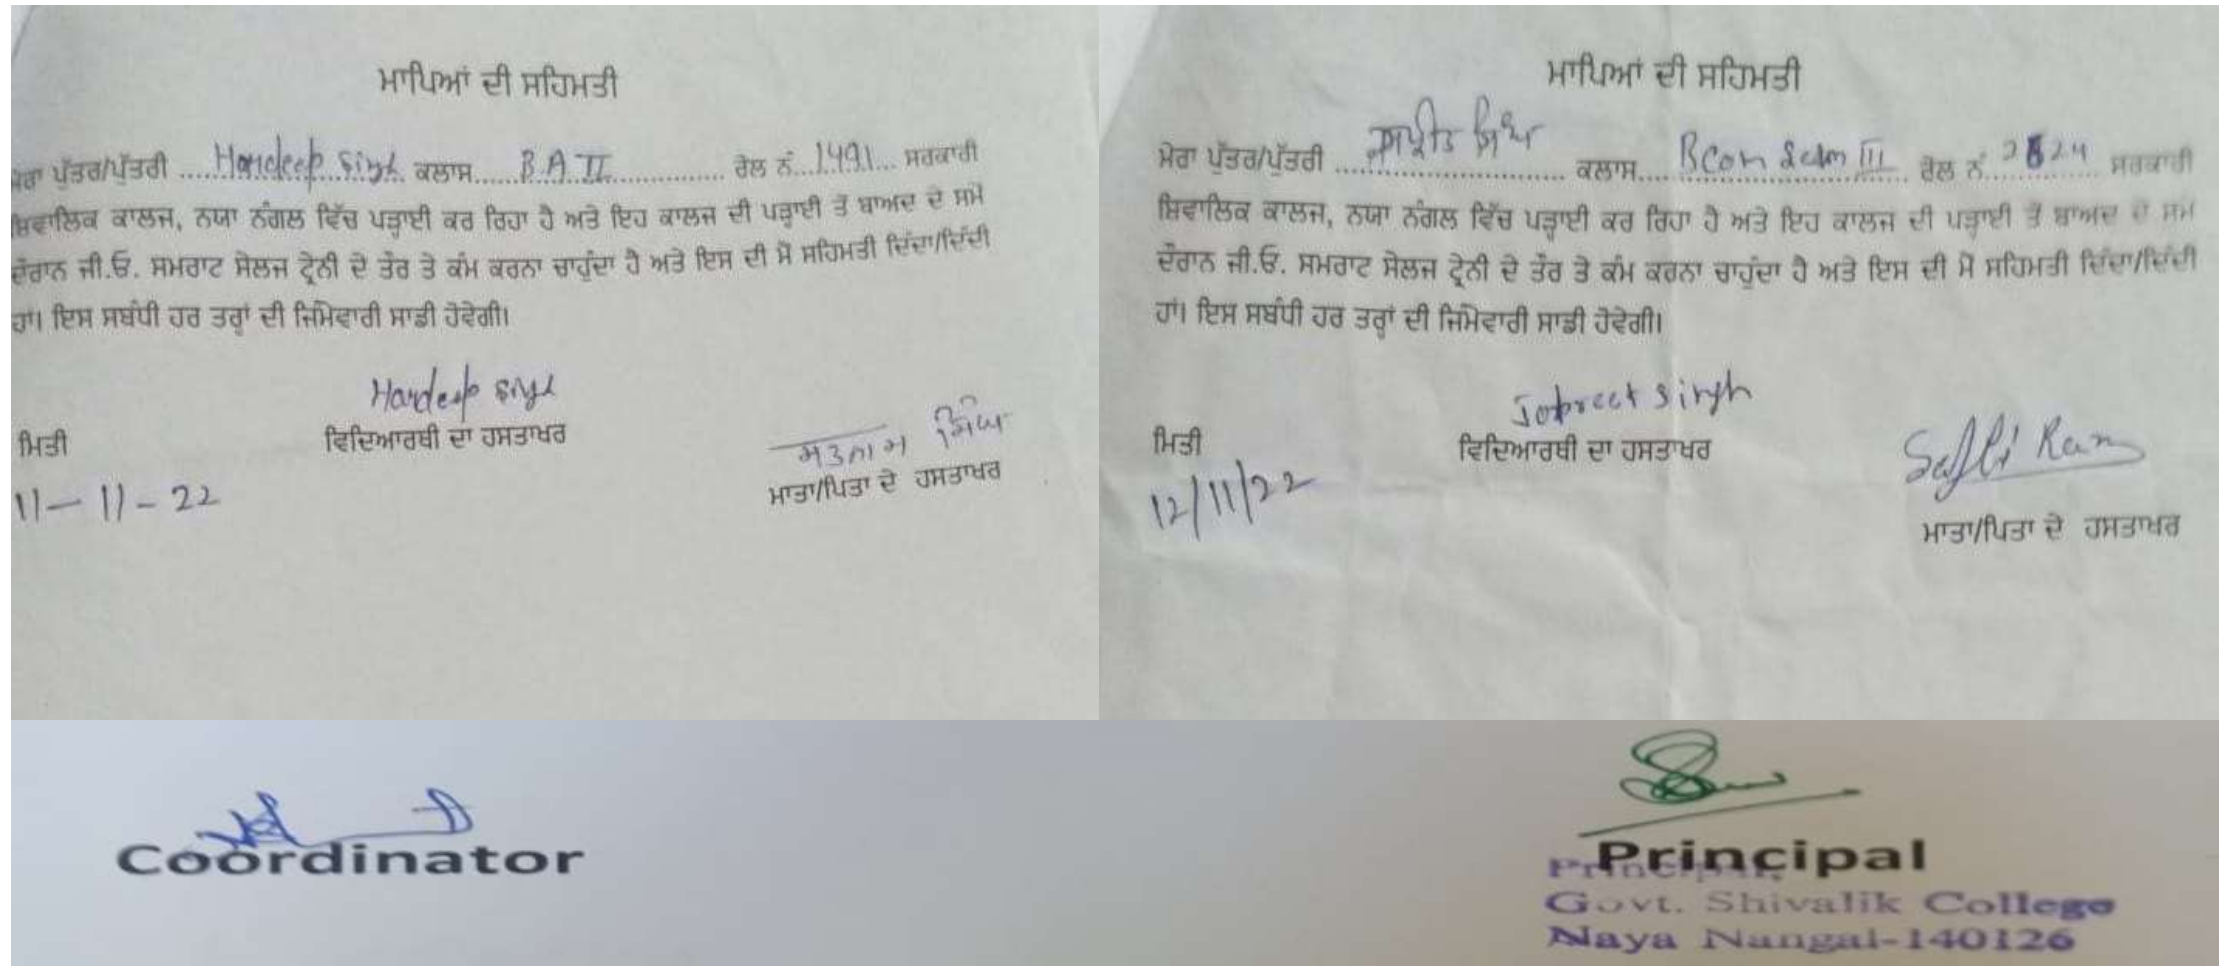 ਮਾਪਿਆਂ ਦੀ ਸਹਿਮਤੀ
ਮੇਰਾ ਪੁੱਤਰ/ਪੁੱਤਰੀ ......Hardeep Singh ਕਲਾਸ......B.A II................ ਰੋਲ ਨੰ...1491... ਸਰਕਾਰੀ
ਸ਼ਿਵਾਲਿਕ ਕਾਲਜ, ਨਯਾ ਨੰਗਲ ਵਿੱਚ ਪੜ੍ਹਾਈ ਕਰ ਰਿਹਾ ਹੈ ਅਤੇ ਇਹ ਕਾਲਜ ਦੀ ਪੜ੍ਹਾਈ ਤੋਂ ਬਾਅਦ ਦੇ ਸਮੇਂ
ਦੌਰਾਨ ਜੀ.ਓ. ਸਮਰਾਟ ਸੇਲਜ ਟ੍ਰੇਨੀ ਦੇ ਤੌਰ ਤੇ ਕੰਮ ਕਰਨਾ ਚਾਹੁੰਦਾ ਹੈ ਅਤੇ ਇਸ ਦੀ ਮੈਂ ਸਹਿਮਤੀ ਦਿੰਦਾ/ਦਿੰਦੀ
ਹਾਂ। ਇਸ ਸਬੰਧੀ ਹਰ ਤਰ੍ਹਾਂ ਦੀ ਜਿੰਮੇਵਾਰੀ ਸਾਡੀ ਹੋਵੇਗੀ।
Hardeep Singh
ਸਤਨਾਮ ਸਿੰਘ
ਮਿਤੀ ਵਿਦਿਆਰਥੀ ਦਾ ਹਸਤਾਖਰ
ਮਾਤਾ/ਪਿਤਾ ਦੇ ਹਸਤਾਖਰ
11-11-22
ਮਾਪਿਆਂ ਦੀ ਸਹਿਮਤੀ
ਮੇਰਾ ਪੁੱਤਰ/ਪੁੱਤਰੀ .............................. ਸਿੰਘ ਕਲਾਸ.... BCom Sem III ਰੋਲ ਨੰ............... ਸਰਕਾਰੀ
ਸ਼ਿਵਾਲਿਕ ਕਾਲਜ, ਨਯਾ ਨੰਗਲ ਵਿੱਚ ਪੜ੍ਹਾਈ ਕਰ ਰਿਹਾ ਹੈ ਅਤੇ ਇਹ ਕਾਲਜ ਦੀ ਪੜ੍ਹਾਈ ਤੋਂ ਬਾਅਦ ਦੇ ਸਮੇਂ
ਦੌਰਾਨ ਜੀ.ਓ. ਸਮਰਾਟ ਸੇਲਜ ਟ੍ਰੇਨੀ ਦੇ ਤੌਰ ਤੇ ਕੰਮ ਕਰਨਾ ਚਾਹੁੰਦਾ ਹੈ ਅਤੇ ਇਸ ਦੀ ਮੈਂ ਸਹਿਮਤੀ ਦਿੰਦਾ/ਦਿੰਦੀ
ਹਾਂ। ਇਸ ਸਬੰਧੀ ਹਰ ਤਰ੍ਹਾਂ ਦੀ ਜਿੰਮੇਵਾਰੀ ਸਾਡੀ ਹੋਵੇਗੀ।
Singh
Ram
ਮਿਤੀ ਵਿਦਿਆਰਥੀ ਦਾ ਹਸਤਾਖਰ
12/11/22
ਮਾਤਾ/ਪਿਤਾ ਦੇ ਹਸਤਾਖਰ
Coordinator
Principal
Principal,
Govt. Shivalik College
Naya Nangal-140126